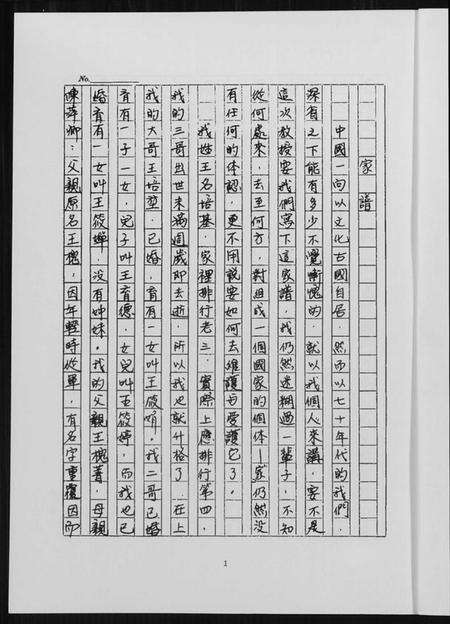 No.
家譜
中國一向以文化古國自居，然而以七十年代的我們，
深有之下能有多少不覺慚愧的，就以我個人來講，要不是
這次教授要我們寫下這家譜，我仍然迷糊過一輩子，不知
從何處來，去至何方，對組成一個國家的個体—家仍然沒
有任何的体認，更不用說要如何去維護与愛護它了。
我姓王名培基，家裡排行老三，實際上應排行第四，
我的三哥出世未滿週歲即去逝，所以我也就升格了，在上
我的大哥王培堃，已婚，育有一女叫王筱，我二哥已婚
育有一子一女，兒子叫王育德，女兒叫王筱婷，而我也已
婚育有一女叫王筱嬋，沒有姊妹。我的父親王槐菁，母親
陳萍卿：父親原名王槐，因年輕時從軍，有名字重覆因即
1